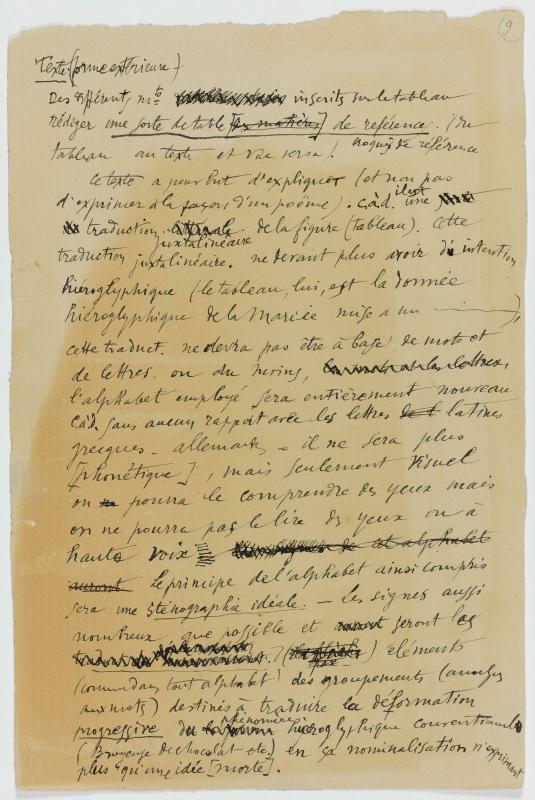 9
Texte (forme extérieure)
Des différents mts inscrits sur le tableau
rédiger une sorte de table [es matières] de référence. (Du
tableau au texte et vice versa). croquis de référence
Le texte a pour but d'expliquer (et non pas
d'exprimer à la façon d'un poème). càd. il est une
traduction littérale juxtalinéaire de la figure (tableau). Cette
traduction juxtalinéaire. ne devant plus avoir d' intention
hiéroglyphique (le tableau, lui, est la donnée
hiéroglyphique de la Mariée mise a nu ———),
cette traduct. ne devra pas être à base de mots et
de lettres. ou du moins,
l'alphabet employé sera entièrement nouveau
càd sans aucun rapport avec les lettres latines
grecques - allemandes = il ne sera plus
[phonétique], mais seulement visuel
on pourra le comprendre des yeux mais
on ne pourra pas le lire des yeux ou à
haute voix de cet alphabet
auront Le principe de l'alphabet ainsi compris
sera une sténographie idéale. — Les signes aussi
nombreux que possible et seront les
éléments
(comme dans tout alphabet) des groupements (analogues
aux mots) destinés à traduire la déformation
progressive du phénomène hiéroglyphique conventionnel
(Broyeuse de chocolat etc.) en sa nominalisation n'exprimant
plus qu'une idée [morte].